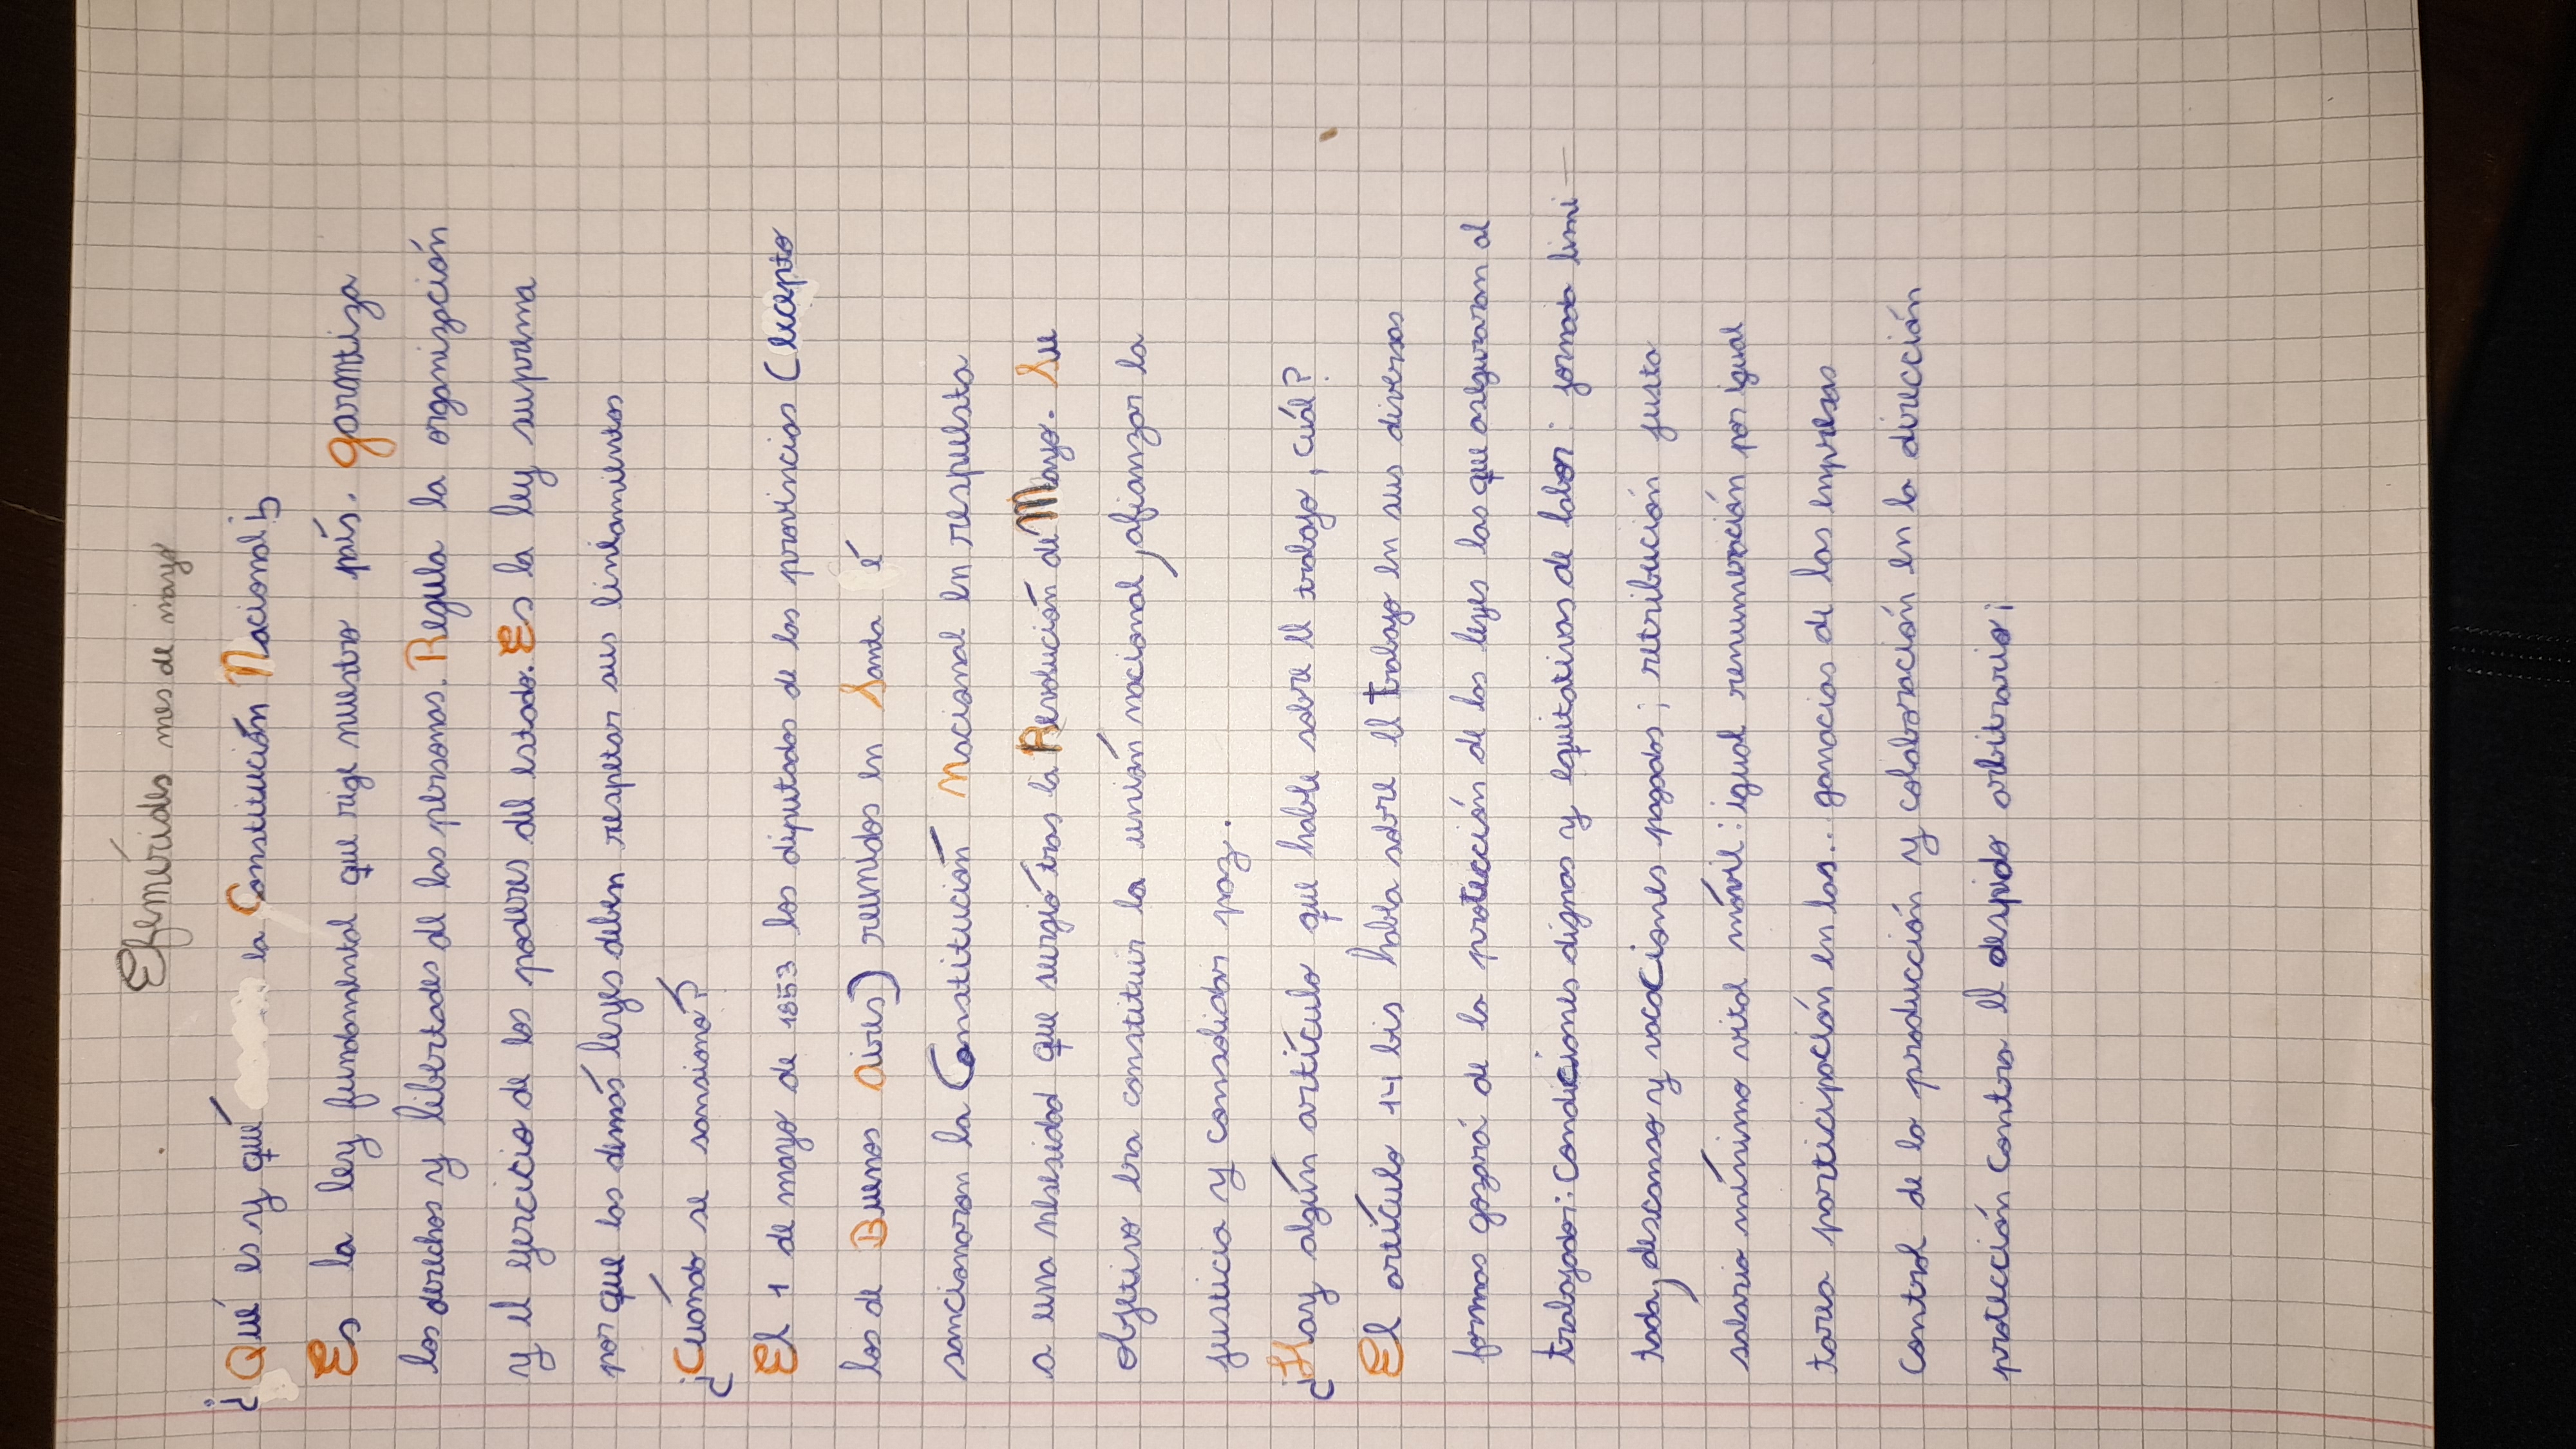 Efemérides mes de mayo
¿Qué es y qué la Constitución Nacional?
Es la ley fundamental que rige nuestro país. Garantiza
los derechos y libertades de las personas. Regula la organizción
y el ejercicio de los poderes del estado. Es la ley suprema
por que las demás leyes deben respetar sus lineamientos
¿Cuándo se sansionó?
El 1 de mayo de 1853 los diputados de las provincias (excepto
los de Buenos Aires) reunidos en Santa é
sancionaron la Constitución Nacional en respuesta
a una nesesidad que surgió tras la Revolución de Mayo. Su
objetivo era constituir la unión nacional, afianzar la
justicia y consolidar paz.
¿Hay algún artículo que hable sobre el trabajo, cuál?
El artículo 14 bis habla sobre el trabajo en sus diversas
formas gozará de la protección de las leyes las que aseguraran al
trabajador: Condiciones dignas y equitativas de labor: jornada limi-
tada, descanso y vacaciones pagados; retribución justa
salario mínimo vital móvil: igual remuneración por igual
tarea participación en las... ganacias de las empresas
control de la producción y colaboración en la dirección
protección contra el despido arbitrario;